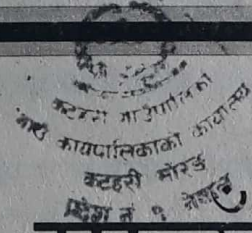 कटहरी गाउँपालिका
गाउँ कार्यपालिकाको कार्यालय
कटहरी मोरङ
प्रदेश नं १ नेपाल